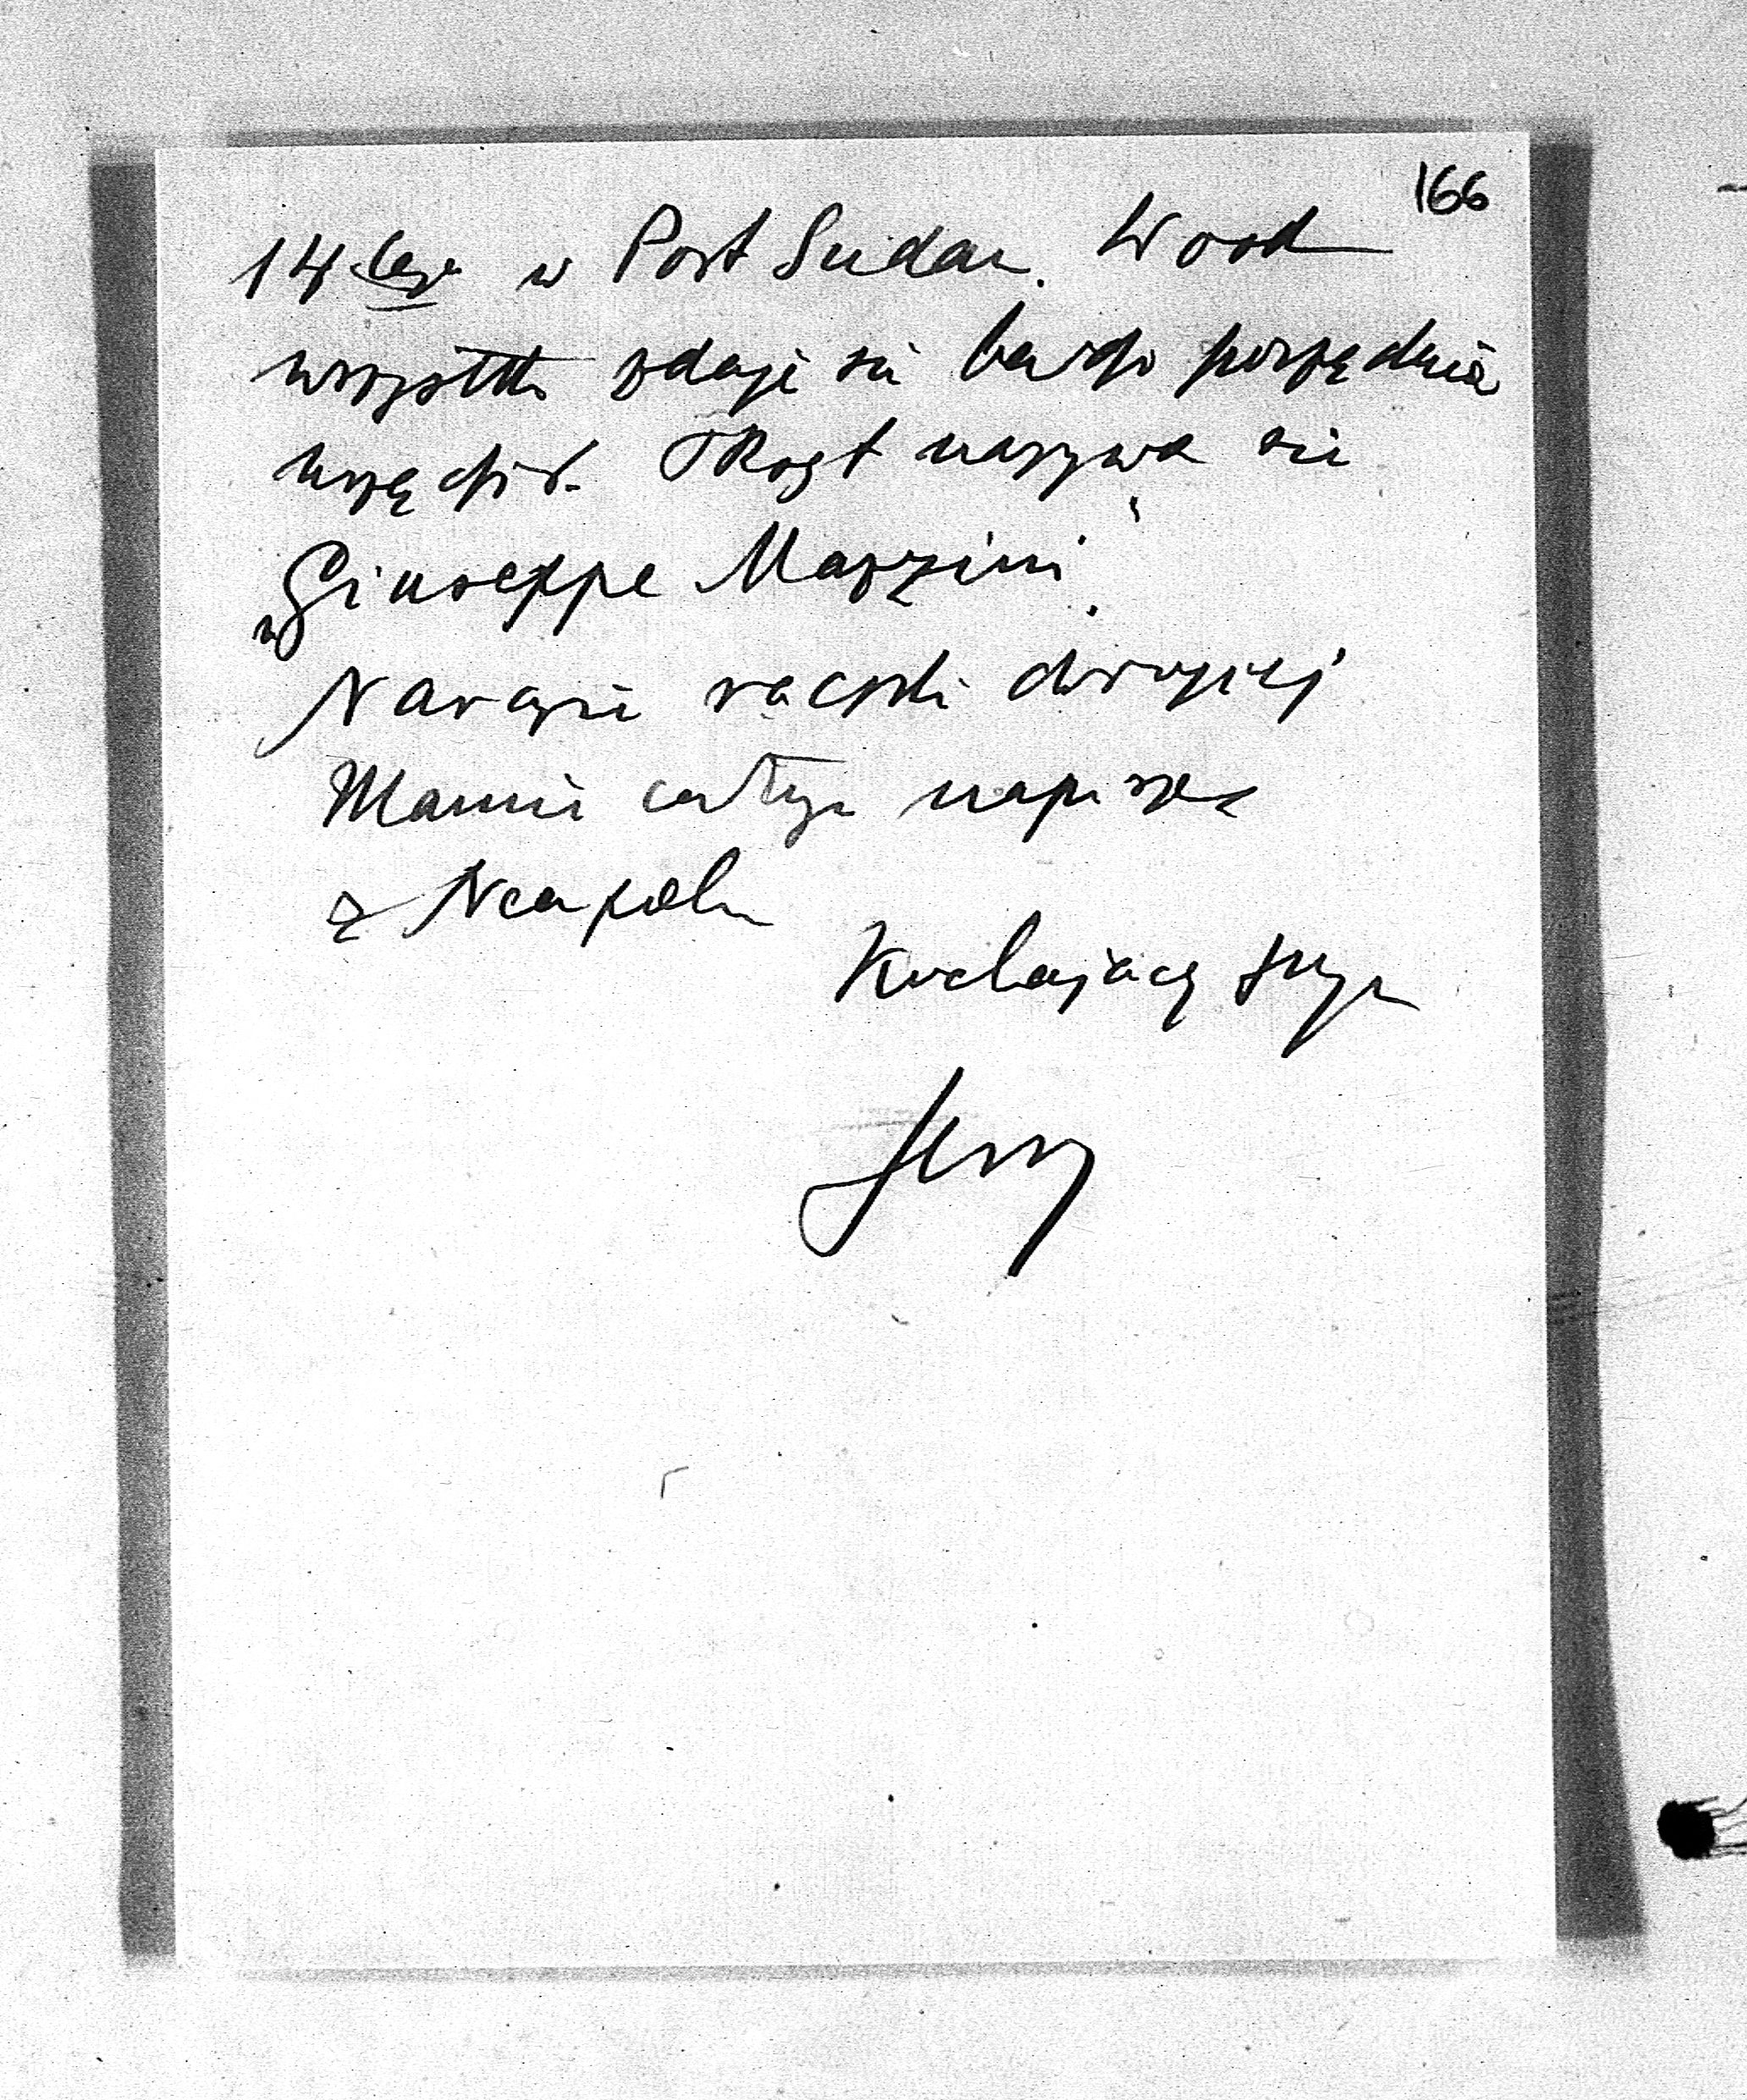 166
14-tego w Port Sudan. Wood
wszystko zdaje się bardzo porządnie
urządził. Okręt nazywa się
„Giuseppe Mazzini".
Narazie rączki drogiej
Mamie całuję napiszę
z Neapolu
Kochający syn
Jerzy